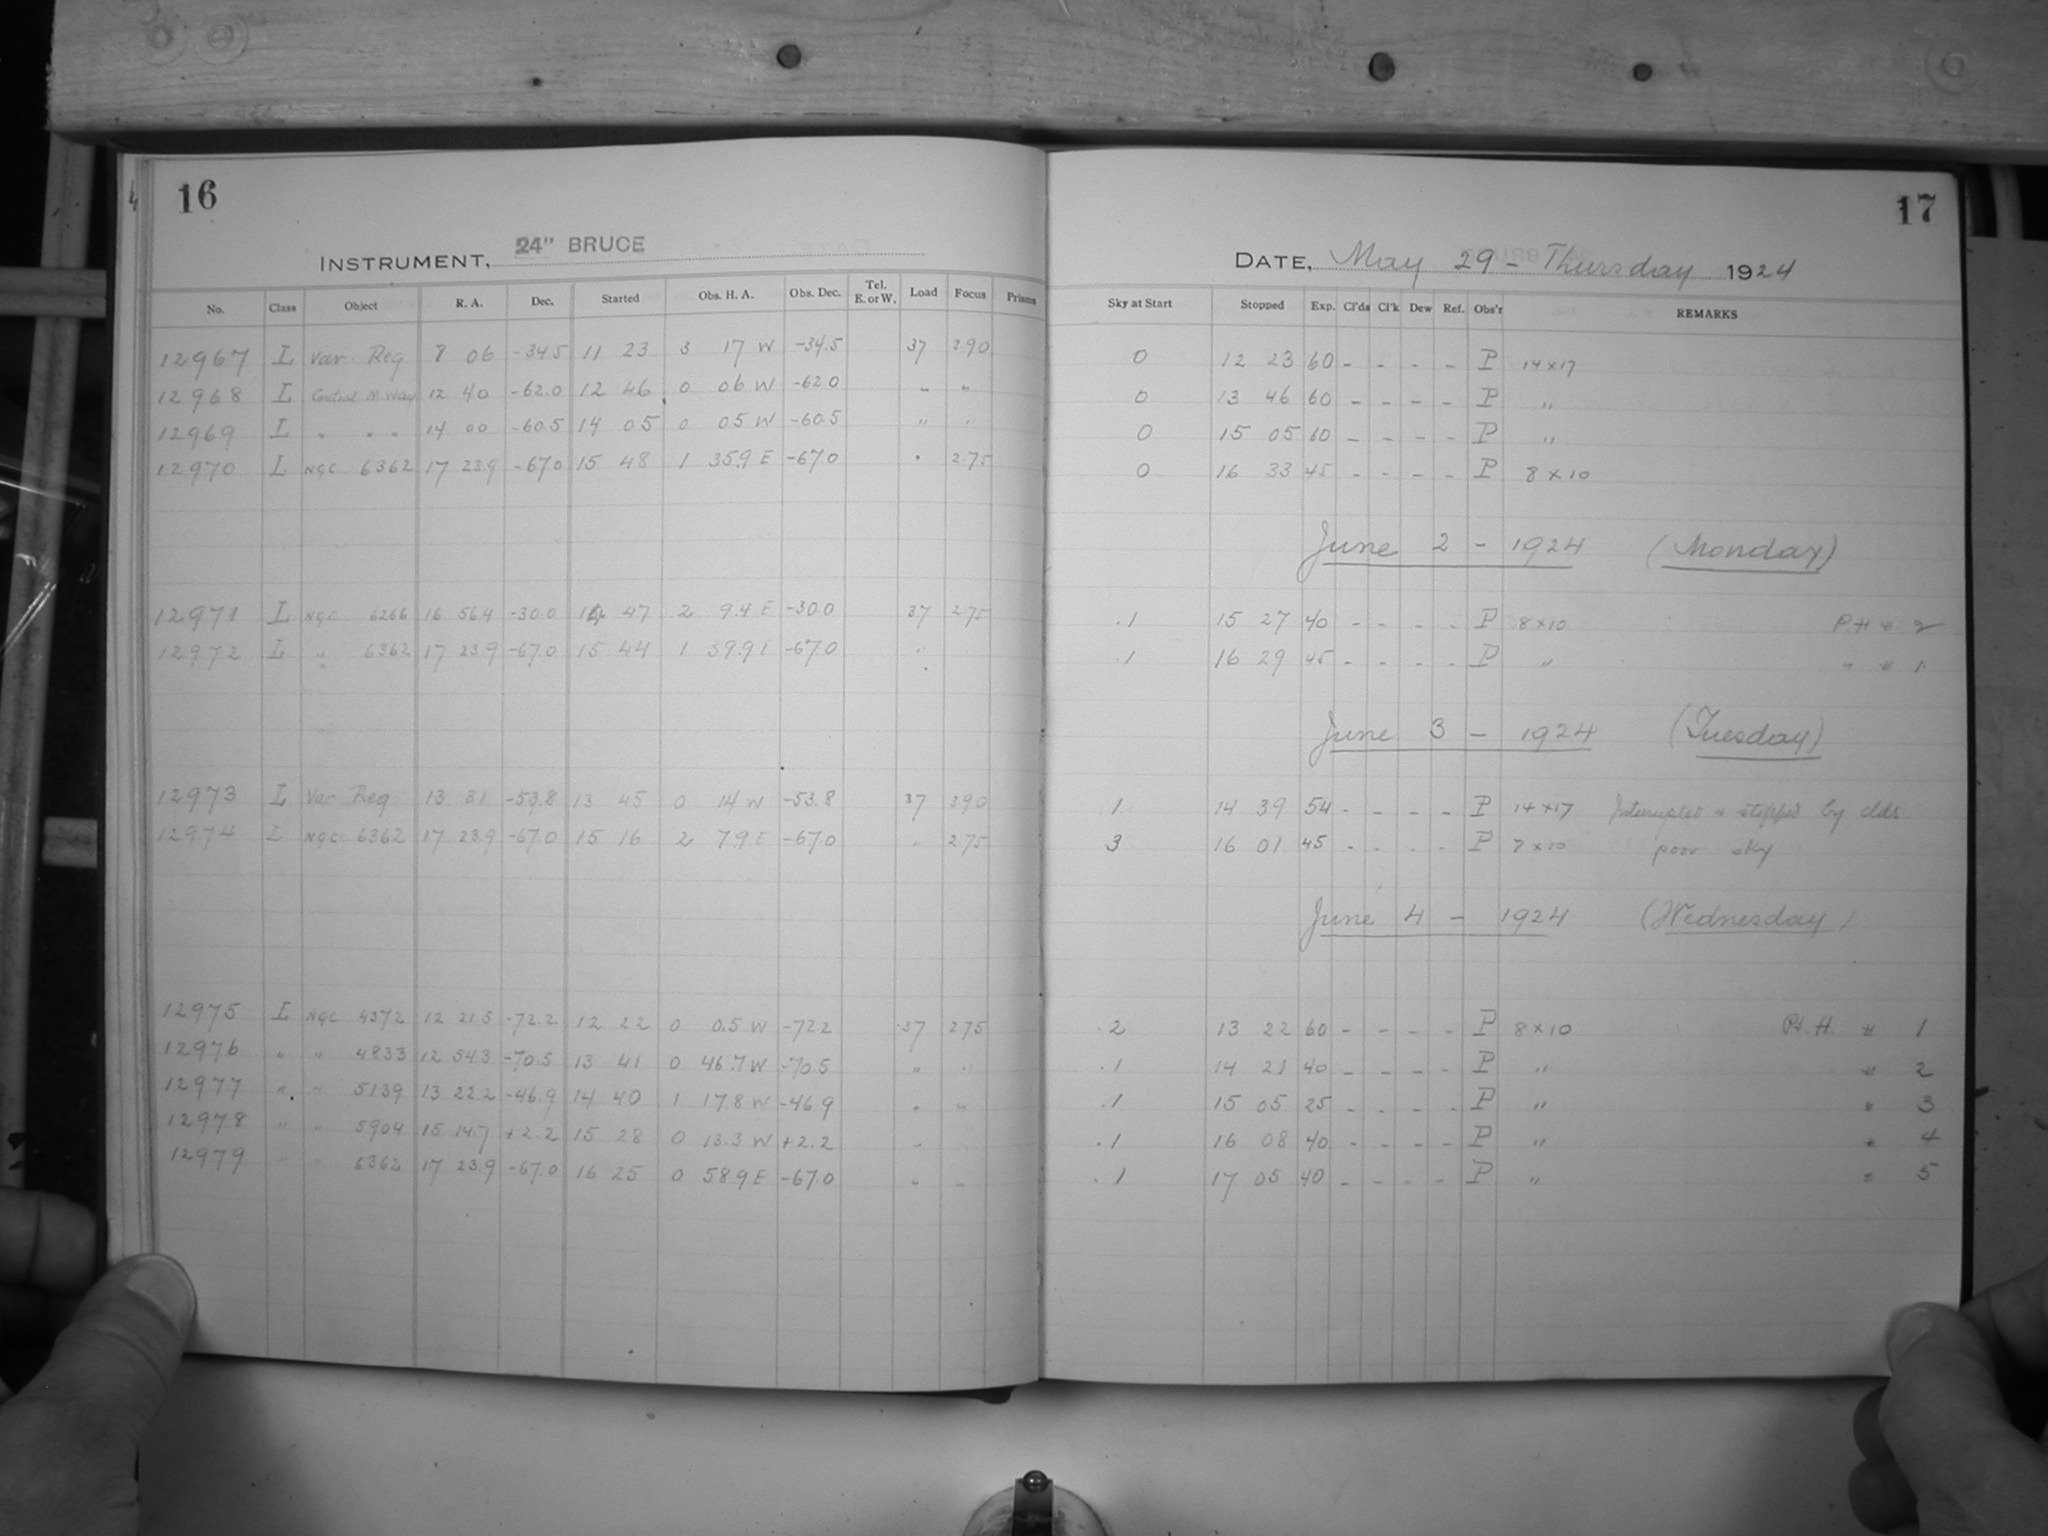 16
INSTRUMENT, 24" BRUCE
No. Class Object R. A. Dec. Started Obs. H. A. Obs. Dec. Tel. E. or W. Load Focus Prisms
12967 I Var Reg 8 06 -34.5 11 23 3 17 W -34.5 37 290
12968 I Central M Way 12 40 -62.0 12 46 0 06 W -62.0 " "
12969 I " " " 14 00 -60.5 14 05 0 05 W -60.5 " "
12970 I NGC 6362 17 23.9 -67.0 15 48 1 35.9 E -67.0 " 275
12971 I NGC 6266 16 56.4 -30.0 14 47 2 9.4 E -30.0 37 275
12972 I " 6362 17 23.9 -67.0 15 44 1 39.9 E -67.0 "
12973 I Var Reg 13 31 -53.8 13 45 0 14 W -53.8 37 290
12974 I NGC 6362 17 23.9 -67.0 15 16 2 7.9 E -67.0 " 275
12975 I NGC 4372 12 21.5 -72.2 12 22 0 0.5 W -72.2 37 275
12976 " " 4833 12 54.3 -70.5 13 41 0 46.7 W -70.5 " "
12977 " " 5139 13 22.2 -46.9 14 40 1 17.8 W -46.9 " "
12978 " " 5904 15 14.7 +2.2 15 28 0 13.3 W +2.2 " "
12979 " " 6362 17 23.9 -67.0 16 25 0 58.9 E -67.0 " "
17
DATE, May 29 - Thursday 1924
Sky at Start Stopped Exp. Cl'ds Cl'k Dew Ref. Obs'r REMARKS
0 12 23 60 - - - - P 14x17
0 13 46 60 - - - - P "
0 15 05 60 - - - - P "
0 16 33 45 - - - - P 8x10
June 2 - 1924 (Monday)
.1 15 27 40 - - - - P 8x10 P.H # 2
.1 16 29 45 - - - - P " " # 1
June 3 - 1924 (Tuesday)
1 14 39 54 - - - - P 14x17 Interrupted & stopped by clds
3 16 01 45 - - - - P 8x10 poor sky
June 4 - 1924 (Wednesday)
.2 13 22 60 - - - - P 8x10 Pl. H # 1
.1 14 21 40 - - - - P " # 2
.1 15 05 25 - - - - P " # 3
.1 16 08 40 - - - - P " # 4
.1 17 05 40 - - - - P " # 5